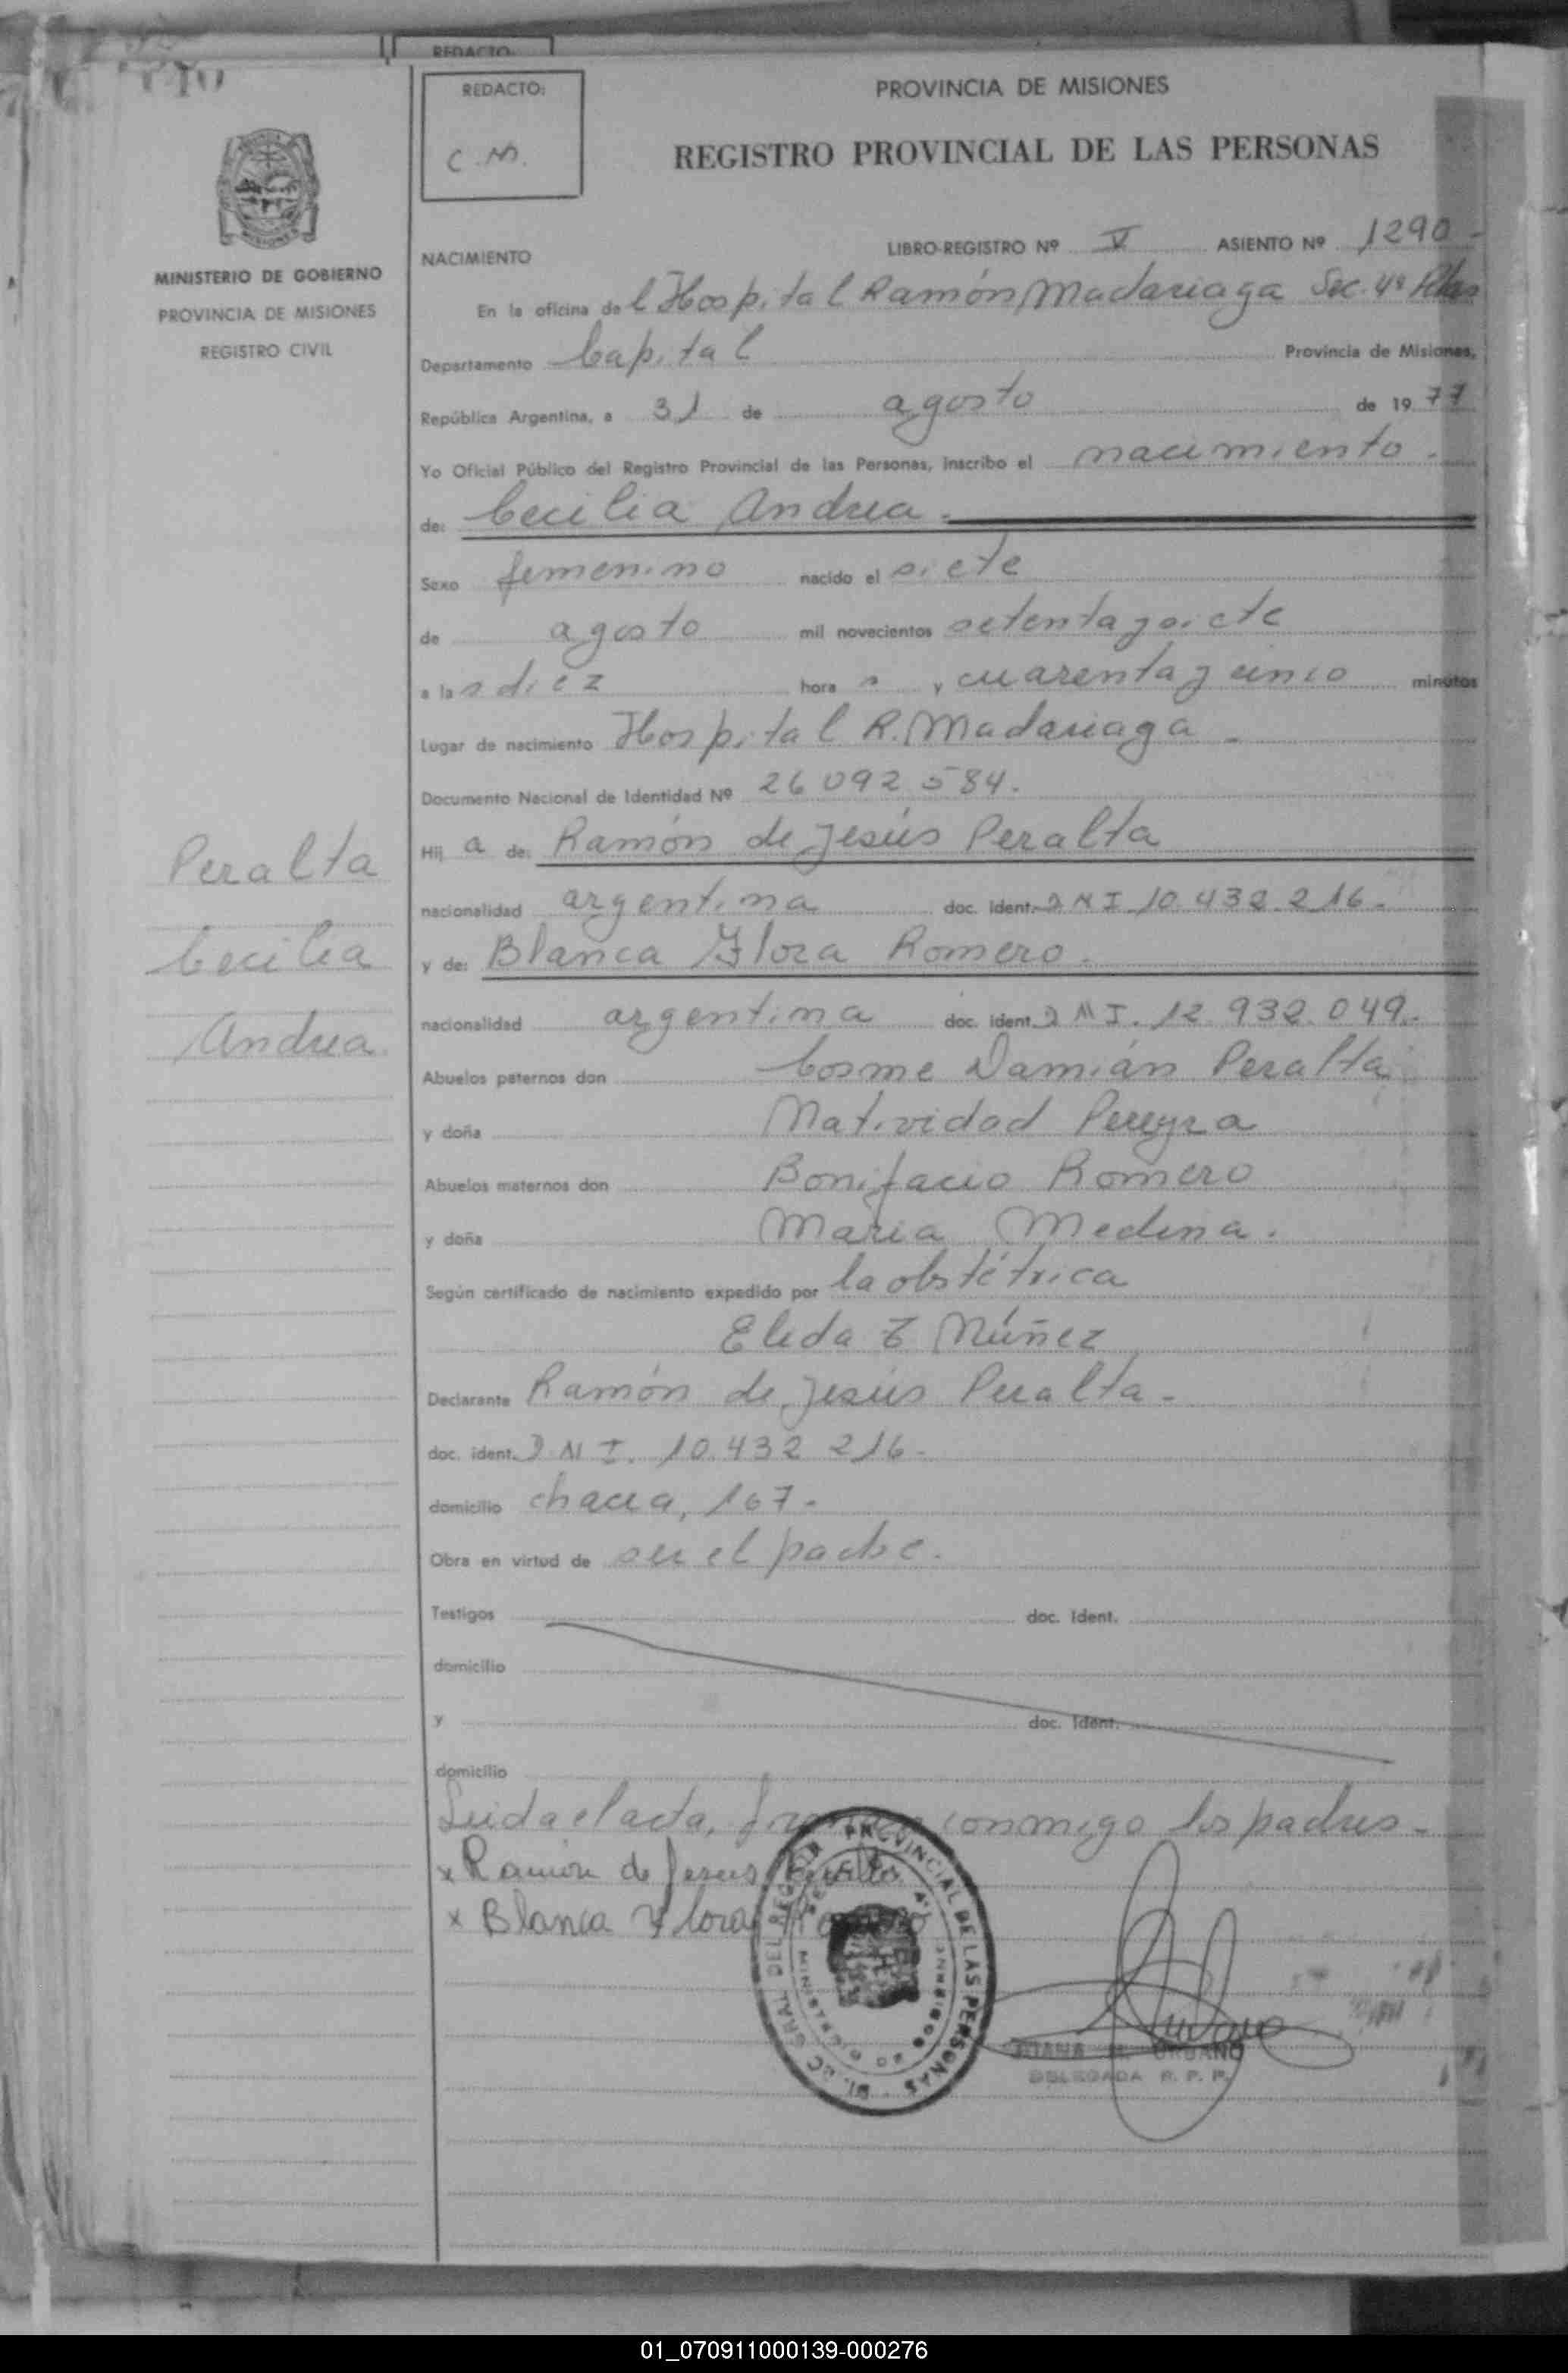 REDACTO:
REDACTO:
C.M.
PROVINCIA DE MISIONES
REGISTRO PROVINCIAL DE LAS PERSONAS
MINISTERIO DE GOBIERNO
PROVINCIA DE MISIONES
REGISTRO CIVIL
NACIMIENTO
LIBRO-REGISTRO Nº V ASIENTO Nº 1290 -
En la oficina de l Hospital Ramón Madariaga Sec. 4ª
Departamento Capital Provincia de Misiones,
República Argentina, a 31 de agosto de 1977
Yo Oficial Público del Registro Provincial de las Personas, inscribo el nacimiento.
de: Cecilia Andrea.
Sexo femenino nacido el siete
de agosto mil novecientos setenta y siete
a las diez hora s y cuarenta y cinco minutos
Lugar de nacimiento Hospital R. Madariaga -
Documento Nacional de Identidad Nº 26 092 584.
Hij a de: Ramón de Jesús Peralta
nacionalidad argentina doc. ident. DNI 10.432.216.
y de: Blanca Flora Romero.
nacionalidad argentina doc. ident. DNI. 12.932.049.
Abuelos paternos don Cosme Damián Peralta
y doña Natividad Pereyra
Abuelos maternos don Bonifacio Romero
y doña Maria Medina.
Según certificado de nacimiento expedido por la obstétrica
Eleda E Núñez
Declarante Ramón de Jesús Peralta -
doc. ident. DNI. 10.432 216-
domicilio chacra, 167-
Obra en virtud de ser el padre.
Testigos doc. ident.
domicilio
y doc. ident.
domicilio
Leida el acta, firman conmigo los padres -
x Ramón de Jesus Peralta
x Blanca Flora Romero
Peralta
Cecilia
Andrea.
DIREC GRAL DEL REGISTR PROVINCIAL DE LAS PERSONAS
MINISTERIO DE GOBIERNO
JUANA M. URBANO
DELEGADA R. P. P.
01_070911000139-000276